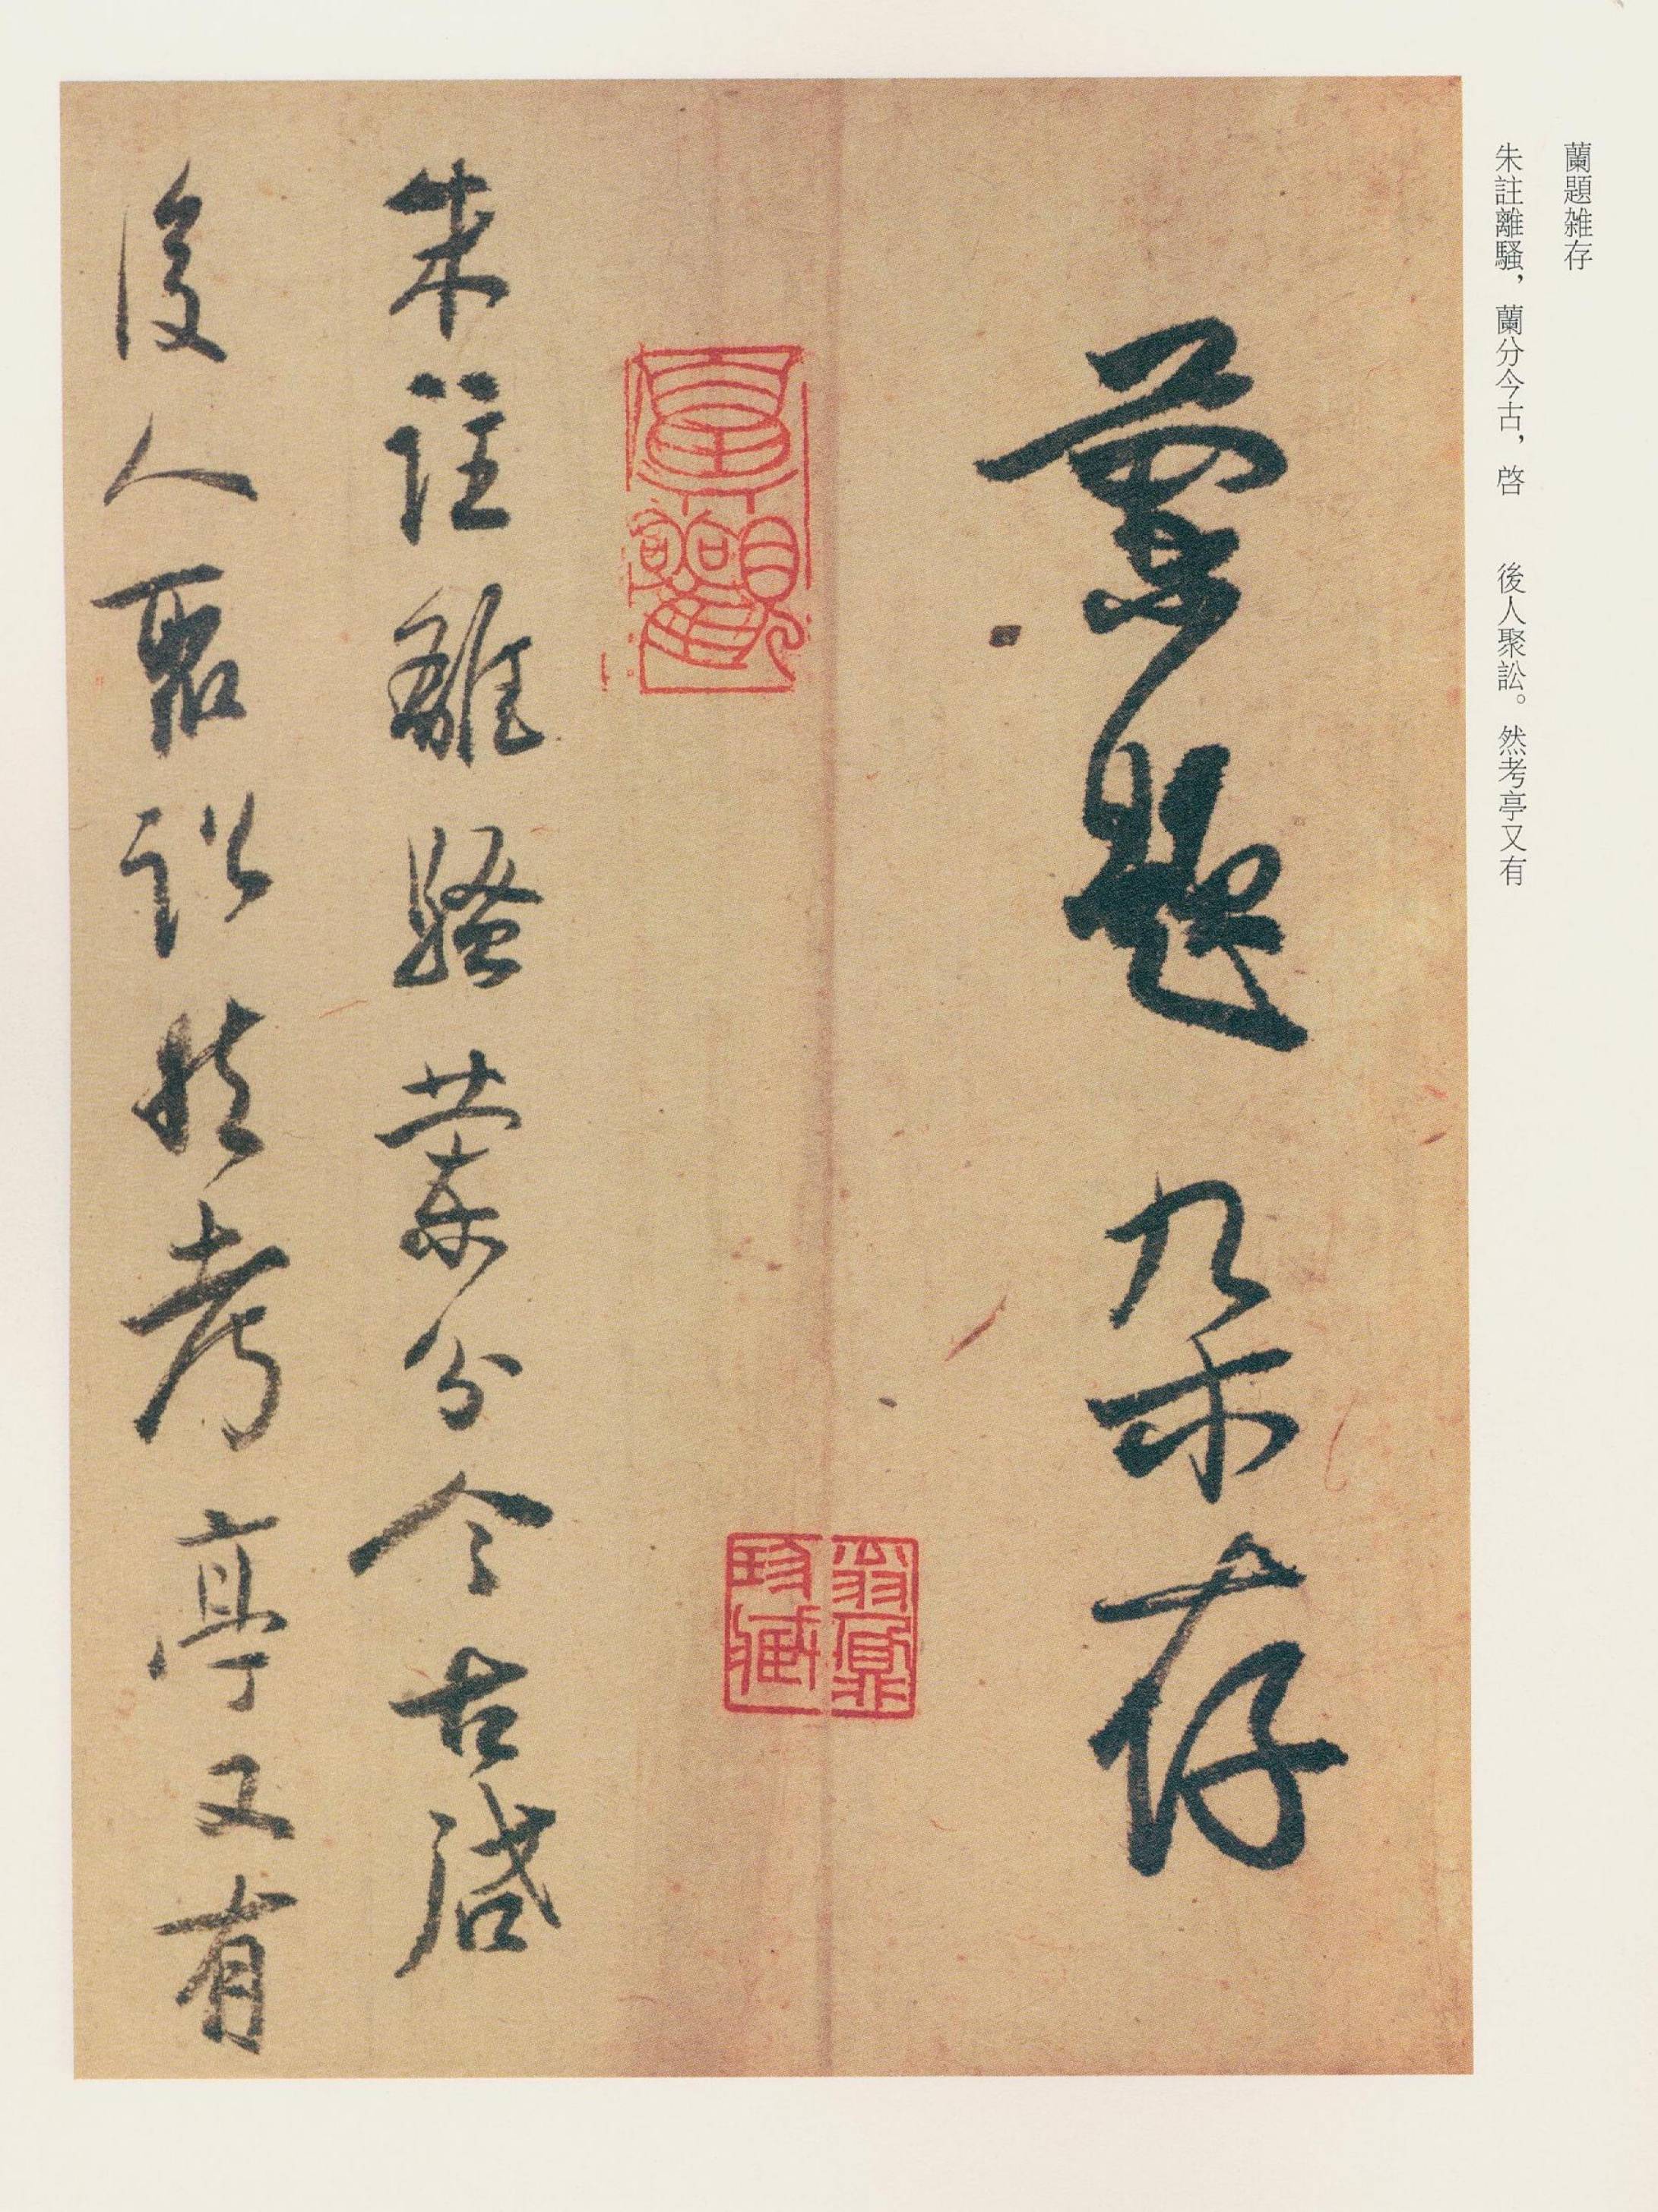 蘭題雑存
朱註離騷，蘭分今古，啓　後人聚訟。然考亭又有
蘭題雜存
朱註離騷蘭分今古啓
後人聚訟然考亭又有